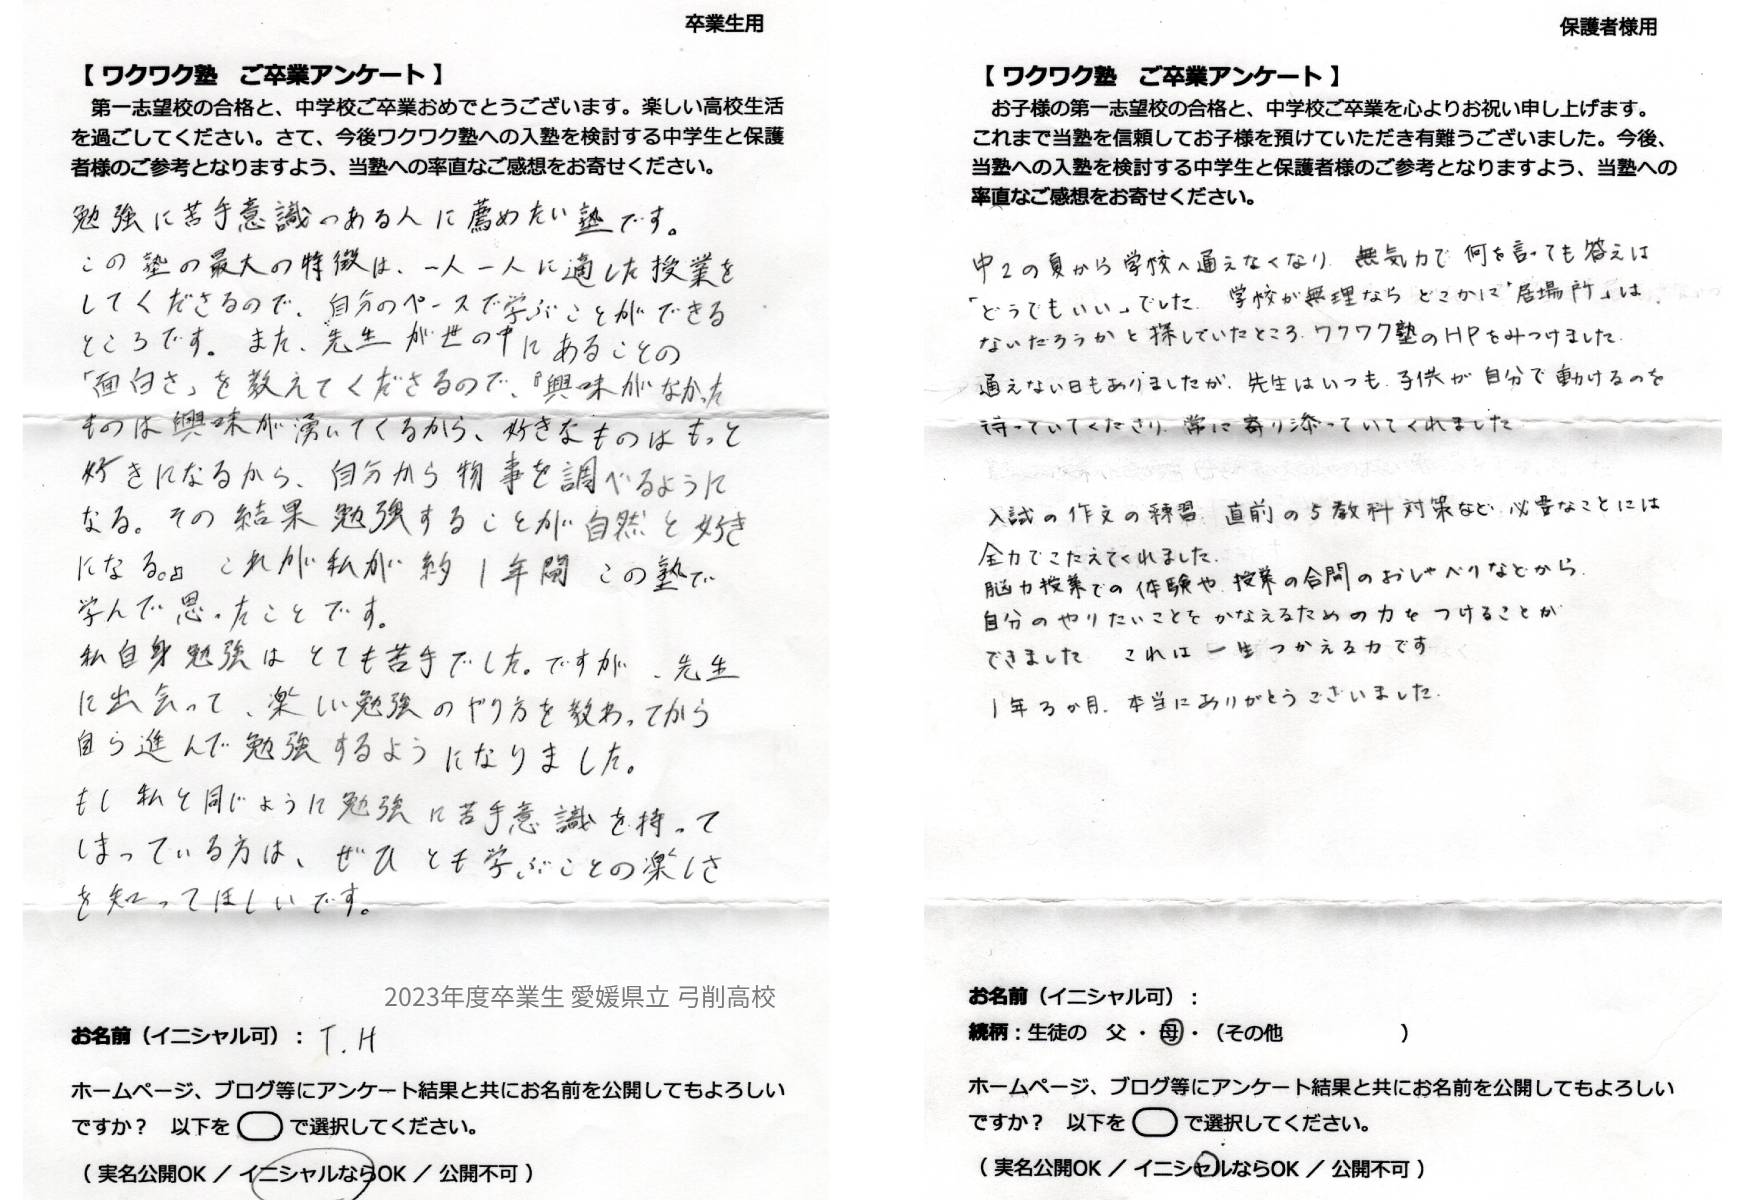 卒業生用
【 ワクワク塾　ご卒業アンケート 】
第一志望校の合格と、中学校ご卒業おめでとうございます。楽しい高校生活
を過ごしてください。さて、今後ワクワク塾への入塾を検討する中学生と保護
者様のご参考となりますよう、当塾への率直なご感想をお寄せください。
勉強に苦手意識のある人に薦めたい塾です。
この塾の最大の特徴は、一人一人に適した授業を
してくださるので、自分のペースで学ぶことができる
ところです。また、先生が世の中にあることの
「面白さ」を教えてくださるので、『興味がなかった
ものは興味が湧いてくるから、好きなものはもっと
好きになるから、自分から物事を調べるように
なる。その結果勉強することが自然と好き
になる。』これが私が約1年間この塾で
学んで思ったことです。
私自身勉強はとても苦手でした。ですが、先生
に出会って、楽しい勉強のやり方を教わってから
自ら進んで勉強するようになりました。
もし私と同じように勉強に苦手意識を持って
しまっている方は、ぜひとも学ぶことの楽しさ
を知ってほしいです。
2023年度卒業生 愛媛県立 弓削高校
お名前（イニシャル可）： T.H
ホームページ、ブログ等にアンケート結果と共にお名前を公開してもよろしい
ですか？　以下を　で選択してください。
（ 実名公開OK ／ イニシャルならOK ／ 公開不可 ）
保護者様用
【 ワクワク塾　ご卒業アンケート 】
お子様の第一志望校の合格と、中学校ご卒業を心よりお祝い申し上げます。
これまで当塾を信頼してお子様を預けていただき有難うございました。今後、
当塾への入塾を検討する中学生と保護者様のご参考となりますよう、当塾への
率直なご感想をお寄せください。
中2の夏から学校へ通えなくなり、無気力で何を言っても答えは
「どうでもいい」でした。学校が無理ならどこかに「居場所」は
ないだろうかと探していたところ、ワクワク塾のHPをみつけました。
通えない日もありましたが、先生はいつも、子供が自分で動けるのを
待っていてくださり、常に寄り添っていてくれました
入試の作文の練習、直前の5教科対策など、必要なことには
全力でこたえてくれました。
脳力授業での体験や、授業の合間のおしゃべりなどから、
自分のやりたいことをかなえるための力をつけることが
できました　これは一生つかえる力です
1年3か月、本当にありがとうございました。
お名前（イニシャル可）：
続柄：生徒の　父 ・ 母 ・（その他　　　　　　）
ホームページ、ブログ等にアンケート結果と共にお名前を公開してもよろしい
ですか？　以下を　で選択してください。
（ 実名公開OK ／ イニシャルならOK ／ 公開不可 ）